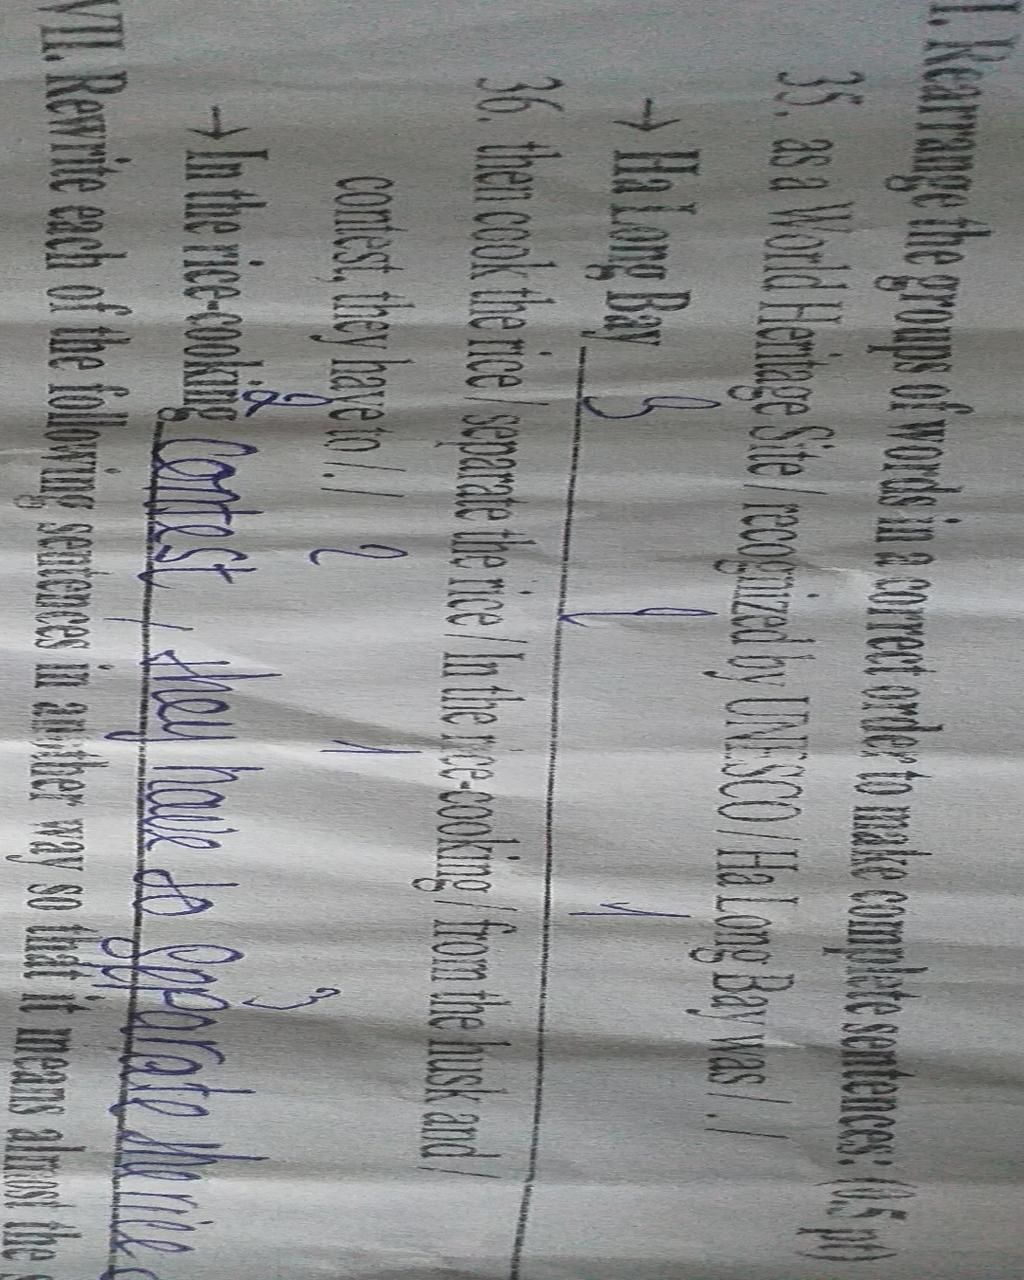 I. Rearrange the groups of words in a correct order to make complete sentences: (0.5 pt)
35. as a World Heritage Site / recognized by UNESCO / Ha Long Bay was / . /
3 2 1
→ Ha Long Bay
36. then cook the rice / separate the rice / In the rice-cooking / from the husk and /
2 1
contest, they have to /. /
2 3
→ In the rice-cooking contest, they have to epparate the rice
VII. Rewrite each of the following sentences in another way so that it means almost the s